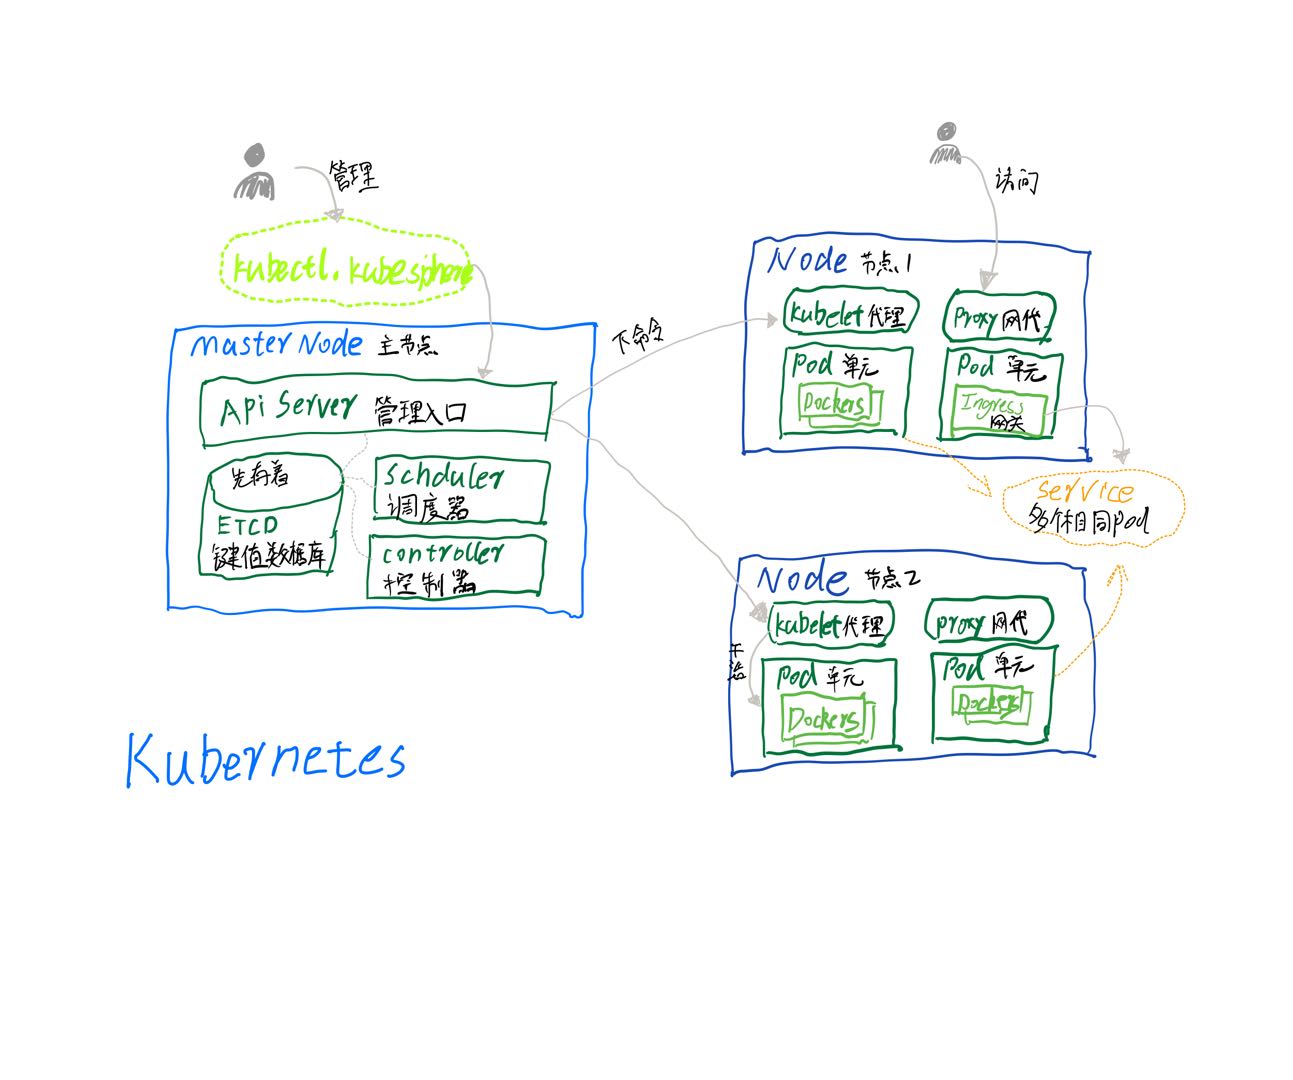 管理
kubectl. kubesphere
master Node 主节点
Api Server 管理入口
先存着
ETCD
键值数据库
Schduler
调度器
controller
控制器
下命令
访问
Node 节点1
kubelet 代理
Proxy 网代
Pod 单元
Dockers
Pod 单元
Ingress
网关
Service
多个相同pod
Node 节点2
kubelet 代理
proxy 网代
干活
Pod 单元
Dockers
Pod 单元
Dockers
Kubernetes